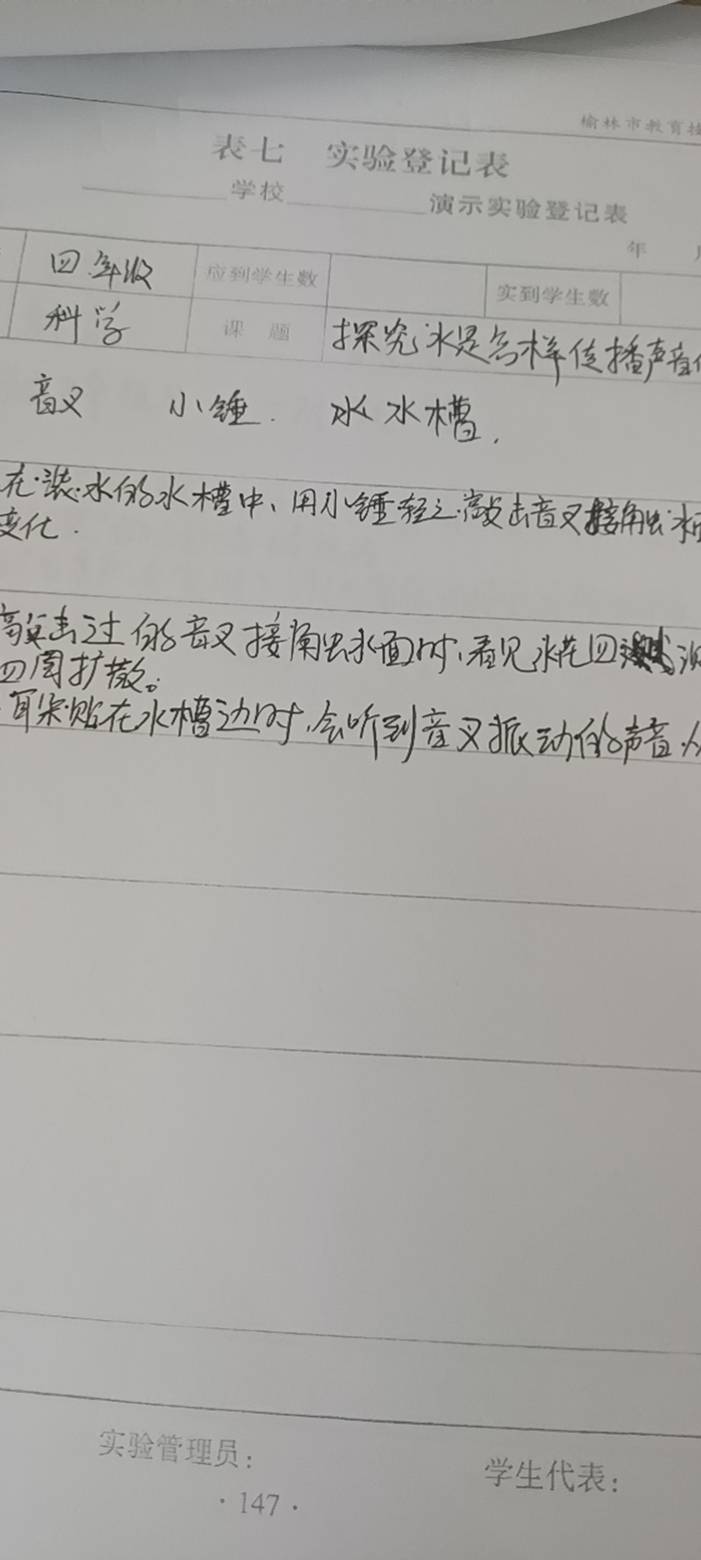 榆林市教育技
表七 实验登记表
学校 演示实验登记表
年
四年级 应到学生数 实到学生数
科学 课题 探究水是怎样传播声音
音叉 小锤. 水 水槽.
在装水的水槽中、用小锤轻轻敲击音叉接触水
变化.
敲击过的音叉接触水面时,看见水花四溅
四周扩散。
耳朵贴在水槽边时,会听到音叉振动的声音
实验管理员: 学生代表:
·147·